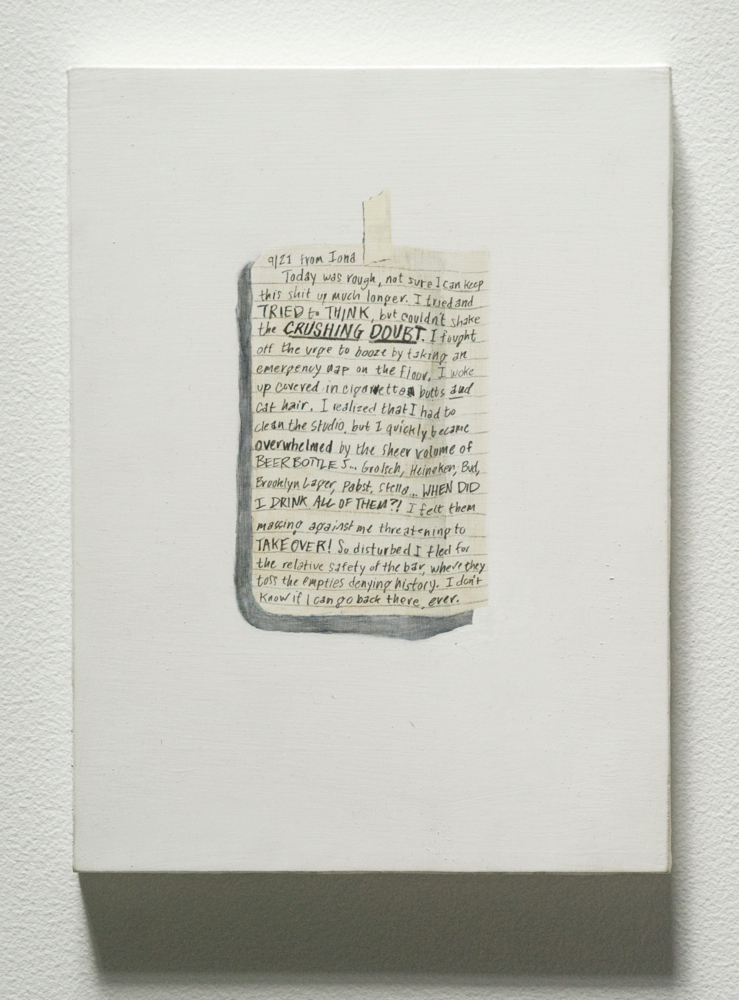 9/21 from Iona
Today was rough, not sure I can keep
this shit up much longer. I tried and
TRIED to THINK, but couldn't shake
the CRUSHING DOUBT. I fought
off the urge to booze by taking an
emergency nap on the floor, I woke
up covered in cigarette butts and
cat hair. I realized that I had to
clean the studio, but I quickly became
overwhelmed by the sheer volume of
BEER BOTTLES... Grolsch, Heineken, Bud,
Brooklyn Lager, Pabst, Stella... WHEN DID
I DRINK ALL OF THEM?! I felt them
massing against me threatening to
TAKEOVER! So disturbed I fled for
the relative safety of the bar, where they
toss the empties denying history. I don't
know if I can go back there, ever.